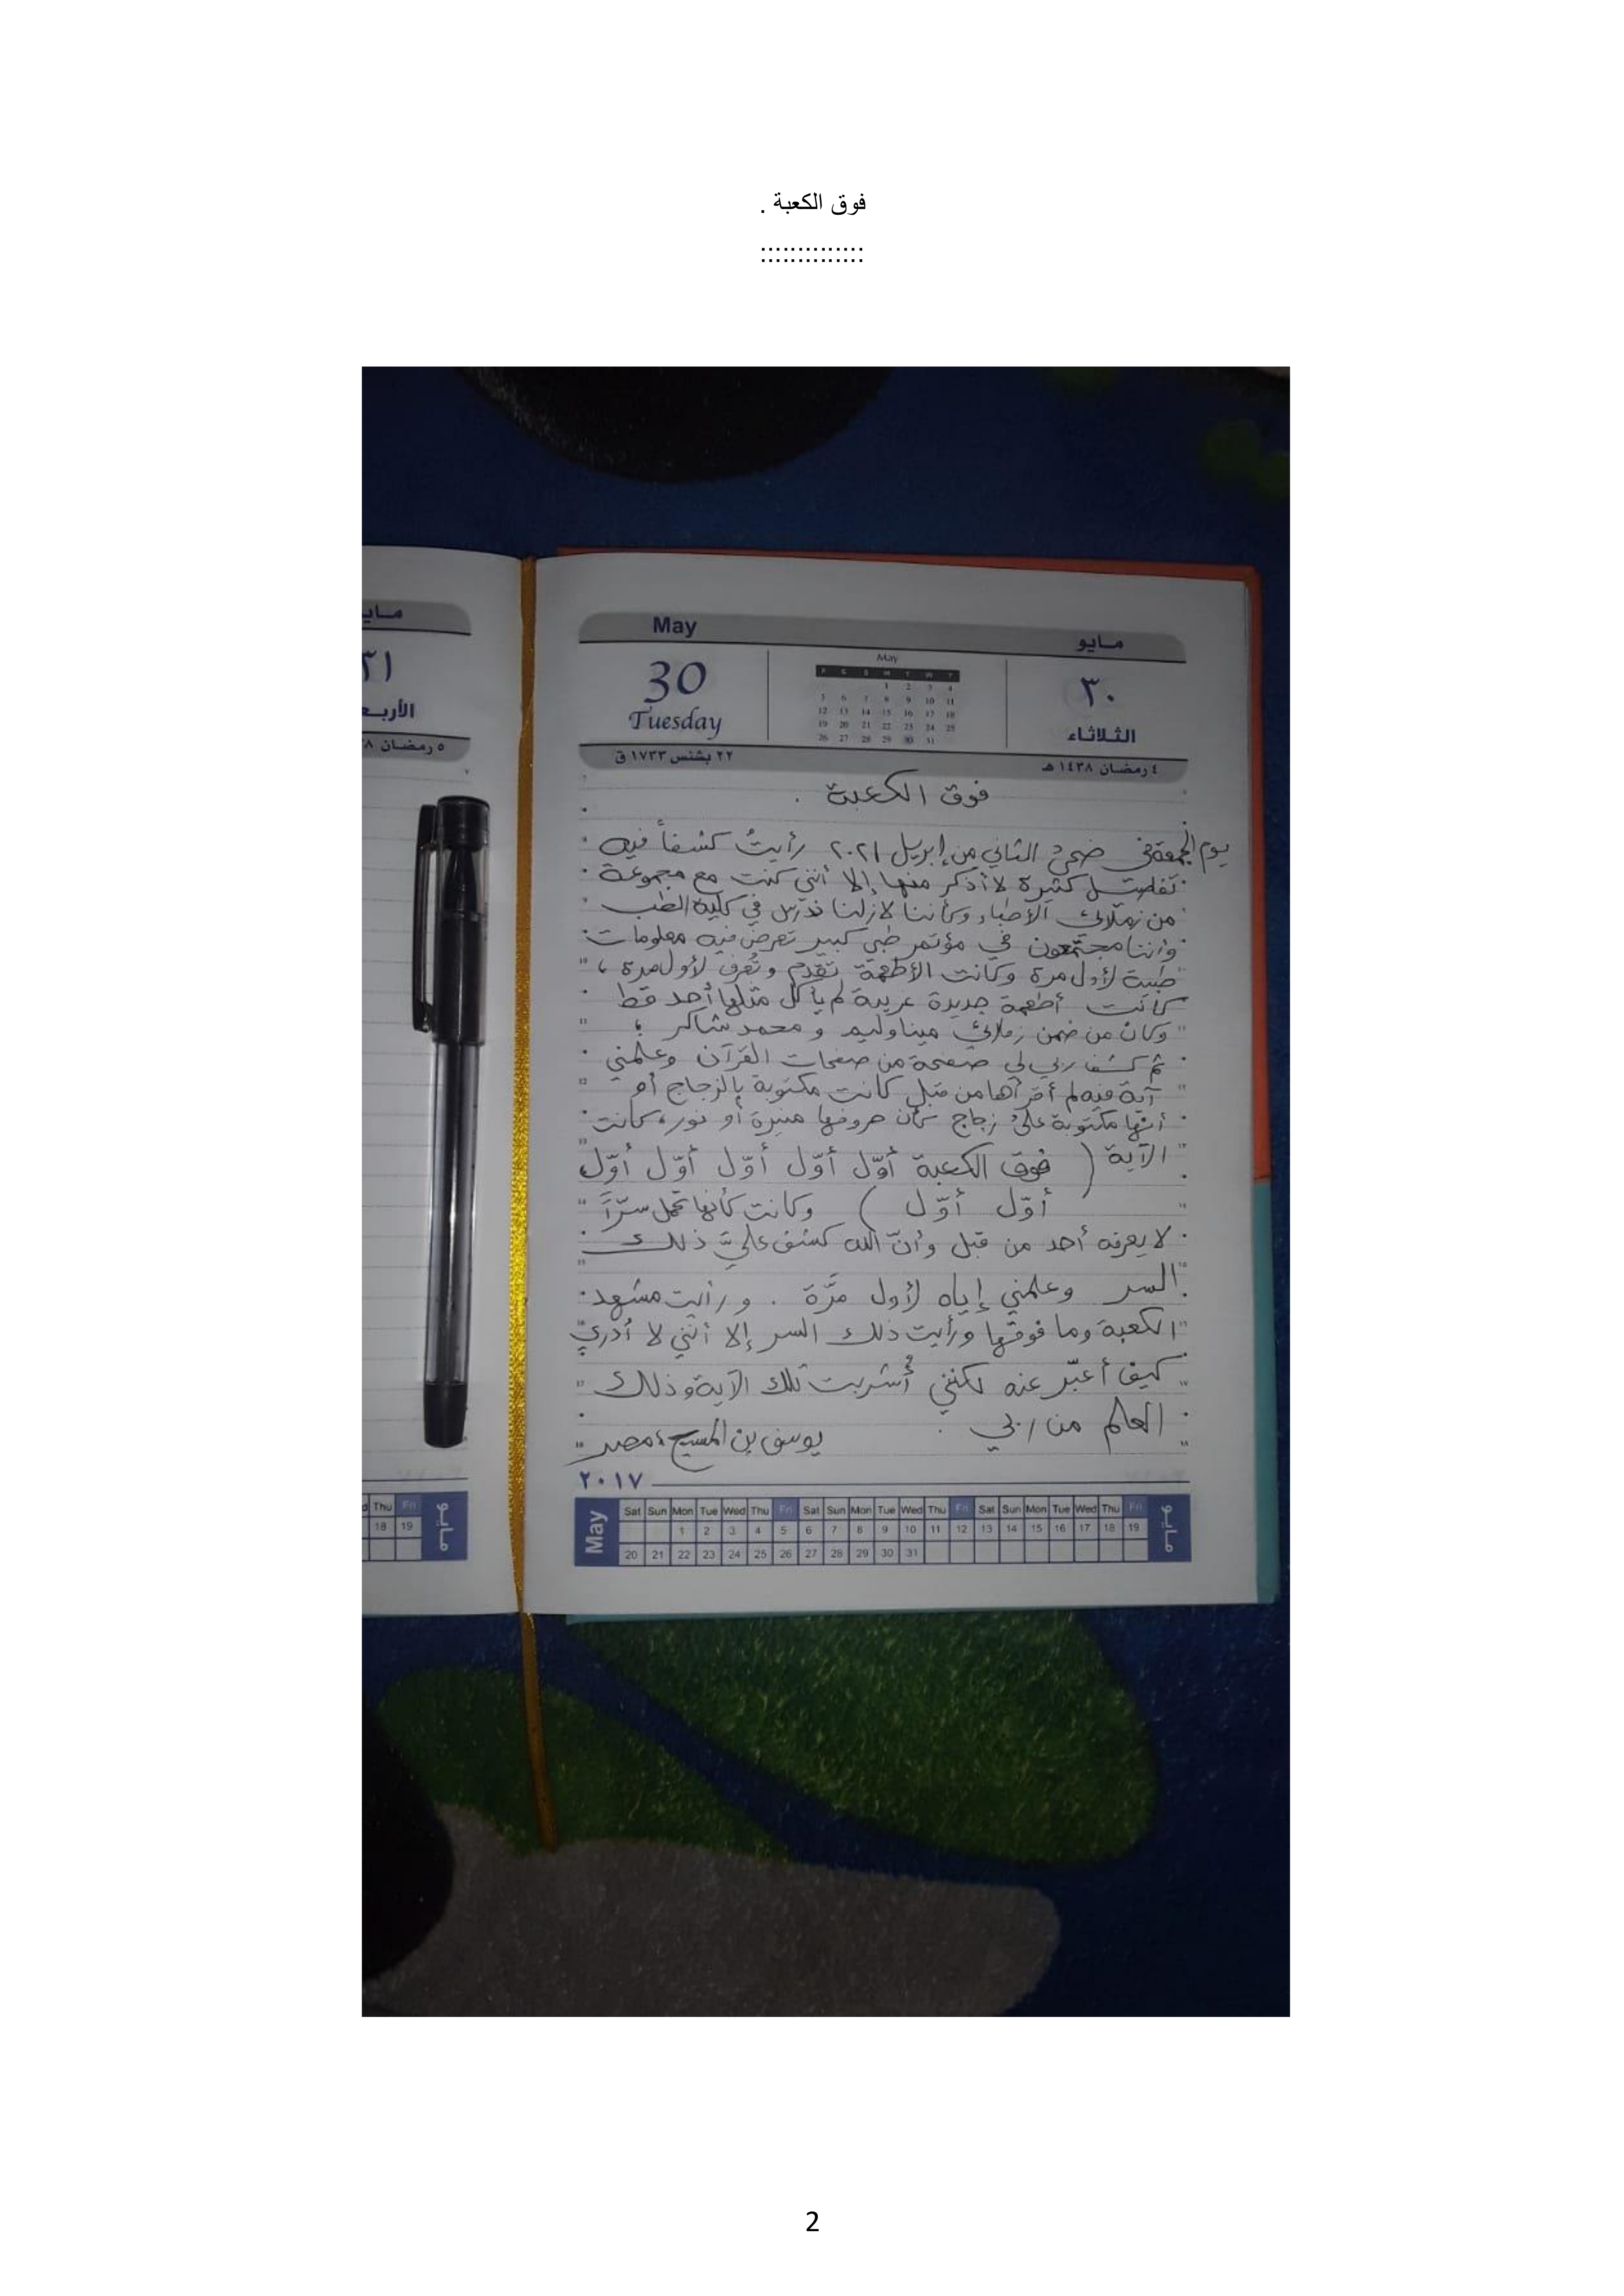 فوق الكعبة .
::::::::::::::
مايو
٣١
الأربعـ
٥ رمضان
May
مايو
30
Tuesday
May
F S S M T W T
1 2 3 4
5 6 7 8 9 10 11
12 13 14 15 16 17 18
19 20 21 22 23 24 25
26 27 28 29 30 31
٣٠
الثلاثاء
٢٢ بشنس ١٧٣٣ ق
٤ رمضان ١٤٣٨ هـ
فوق الكعبة .
يوم الجمعة في ضحىٰ الثاني من إبريل ٢٠٢١ رأيتُ كشفاً فيه
تفاصيل كثيرة لا أذكر منها إلا أنني كنت مع مجموعة
من زملائي الأطباء وكأننا لازلنا ندرس في كلية الطب
وأننا مجتمعون في مؤتمر طبي كبير تعرض فيه معلومات
طبية لأول مرة وكانت الأطعمة تقدم وتُعرف لأول مرة ،
كانت أطعمة جديدة غريبة لم يأكل مثلها أحد قط
وكان من ضمن زملائي مينا وليم و محمد شاكر ؛
ثم كشف ربي لي صفحة من صفحات القرآن وعلمني
آية فيه لم أقرأها من قبل كانت مكتوبة بالزجاج أو
أنها مكتوبة علىٰ زجاج كأن حروفها منيرة أو نور ، كانت
الآية ( فوق الكعبة أوّل أوّل أوّل أوّل أوّل
أوّل أوّل ) وكانت كأنها تحمل سرّاً
لا يعرفه أحد من قبل وأنّ الله كشف عليَّ ذلك
السر وعلمني إياه لأول مرَّة . و رأيت مشهد
الكعبة وما فوقها ورأيت ذلك السر إلا أنني لا أدري
كيف أعبّر عنه لكنني أُشربت تلك الآية وذلك
العالم من ربي .
يوسف بن المسيح ، مصر
٢٠١٧
May
Sat Sun Mon Tue Wed Thu Fri Sat Sun Mon Tue Wed Thu Fri Sat Sun Mon Tue Wed Thu Fri
1 2 3 4 5 6 7 8 9 10 11 12 13 14 15 16 17 18 19
20 21 22 23 24 25 26 27 28 29 30 31
مايو
Thu Fri
18 19
مايو
2